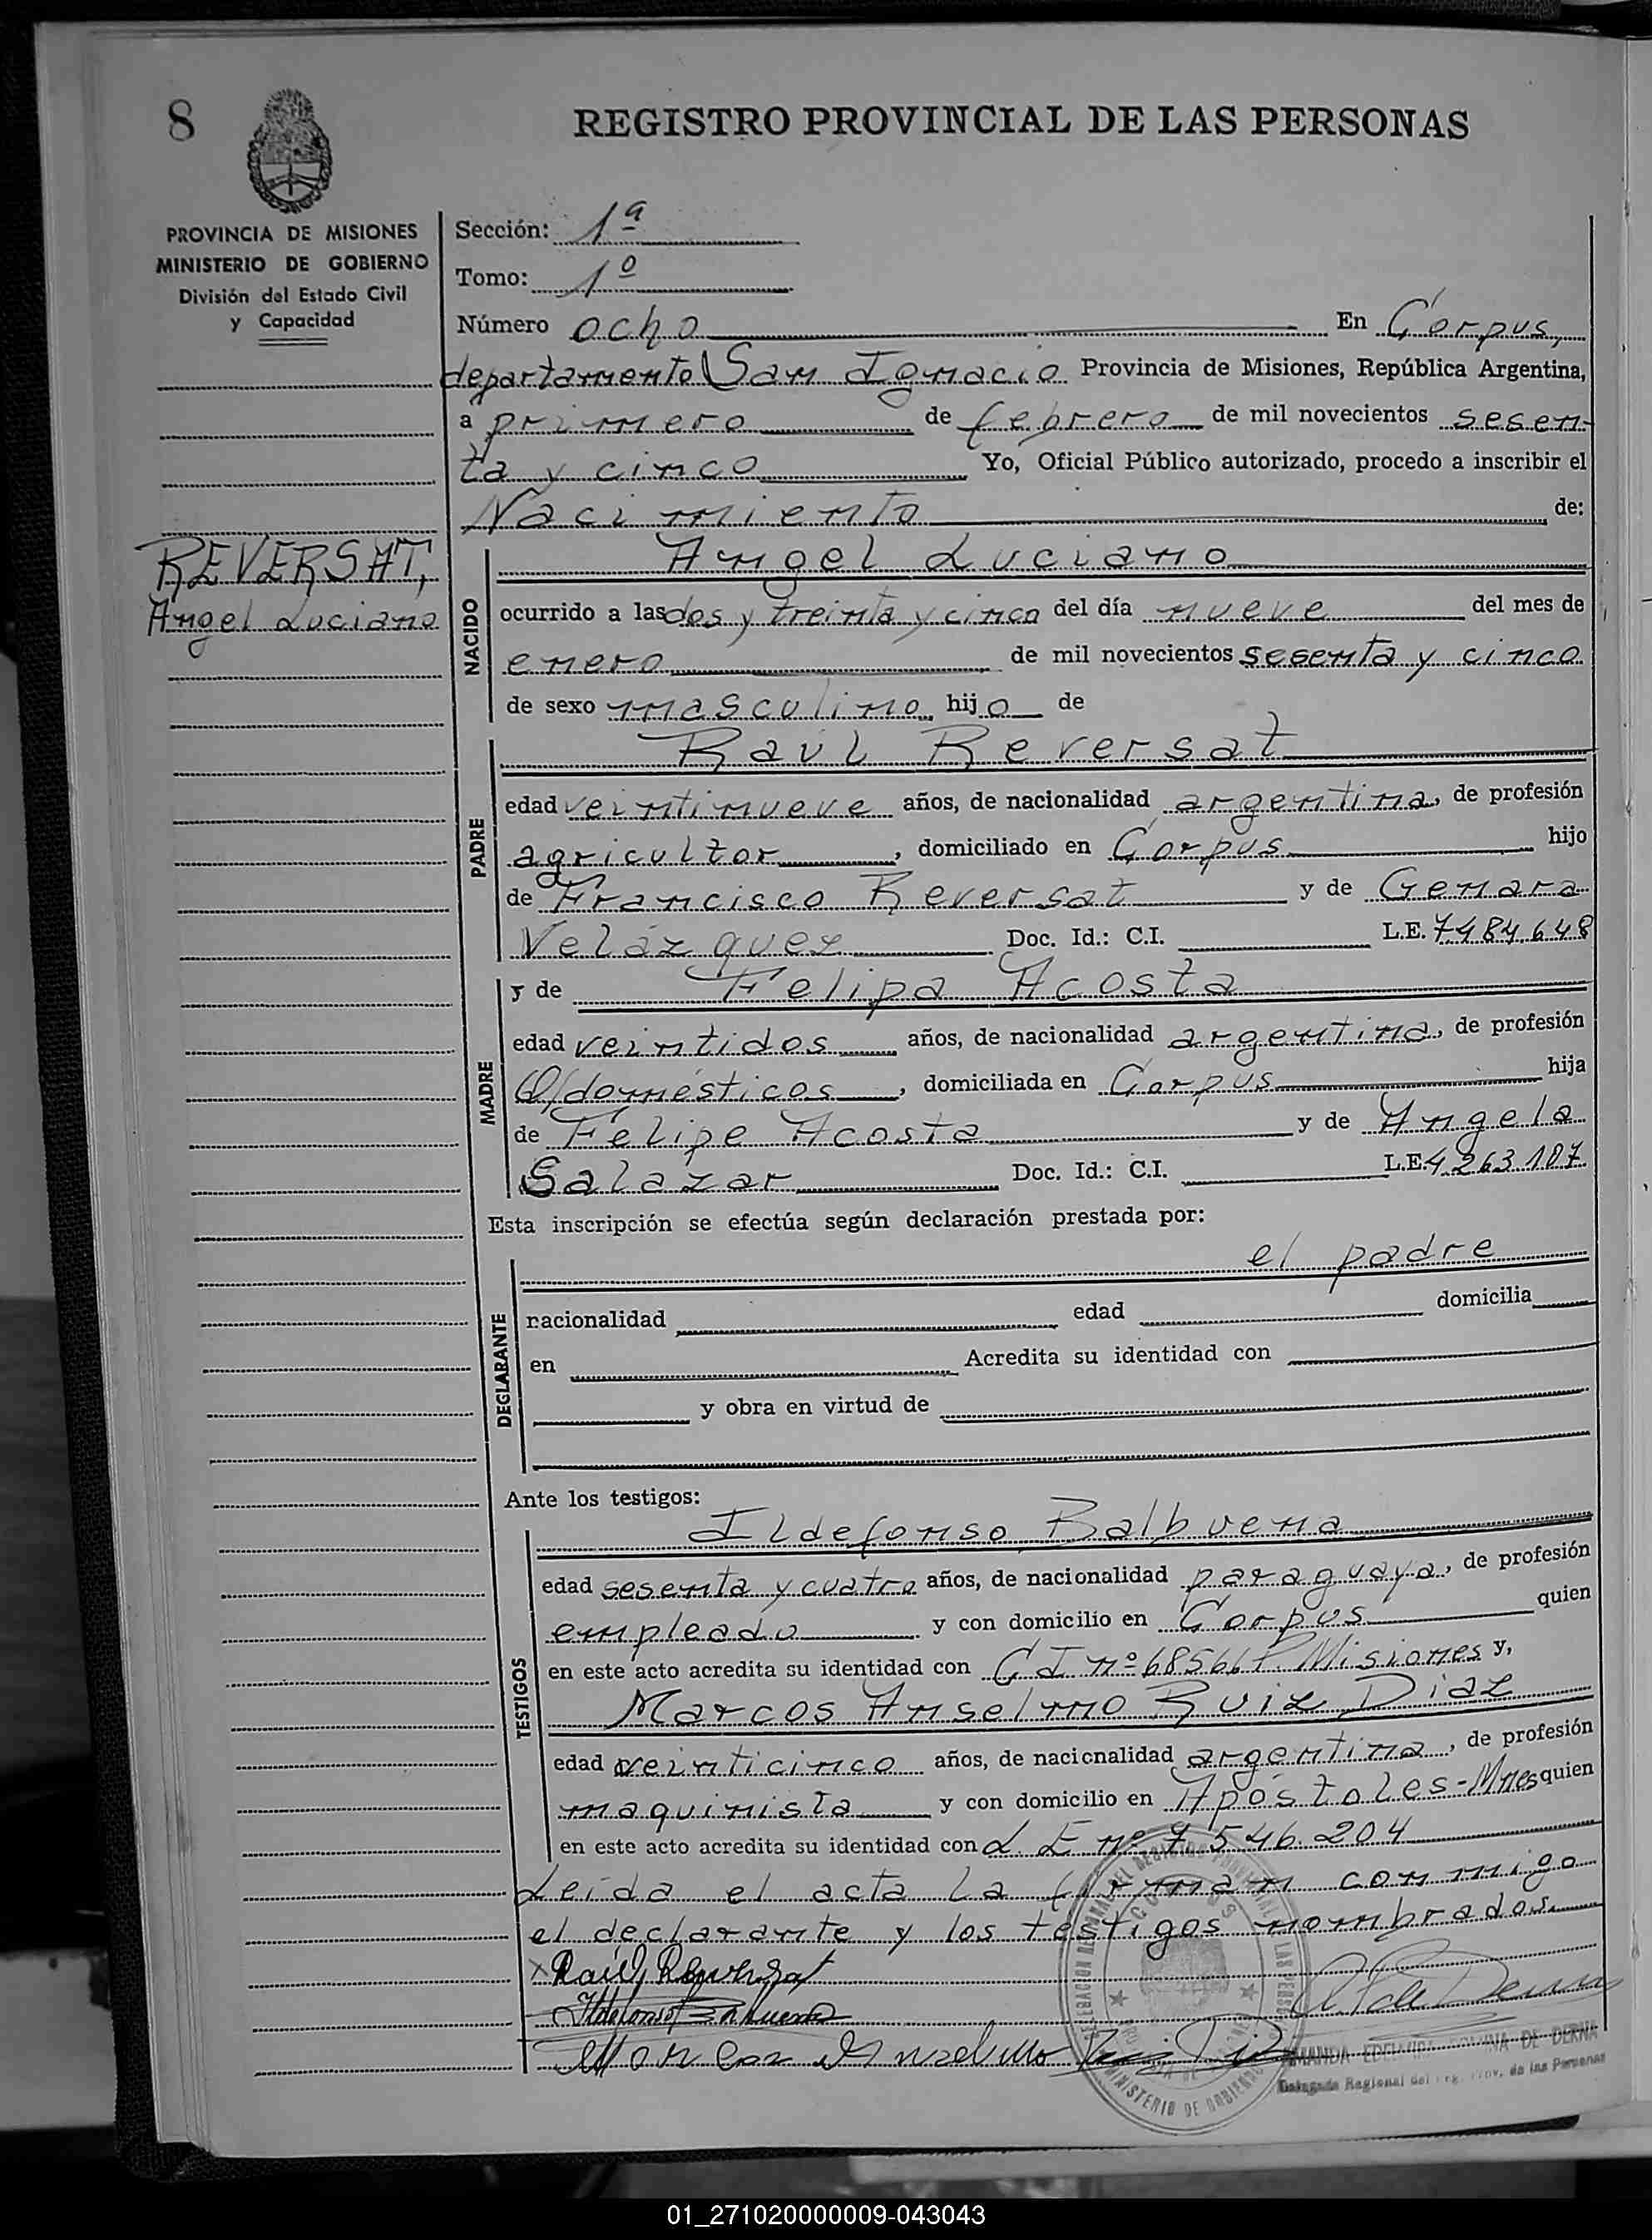 8
REGISTRO PROVINCIAL DE LAS PERSONAS
PROVINCIA DE MISIONES
MINISTERIO DE GOBIERNO
División del Estado Civil
y Capacidad
Sección: 1ª
Tomo: 1º
Número ocho En Corpus,
departamento San Ignacio Provincia de Misiones, República Argentina,
a primero de febrero de mil novecientos sesen-
ta y cinco Yo, Oficial Público autorizado, procedo a inscribir el
Nacimiento de:
REVERSAT,
Angel Luciano
NACIDO
Angel Luciano
ocurrido a las dos y treinta y cinco del día nueve del mes de
enero de mil novecientos sesenta y cinco
de sexo masculino hijo de
PADRE
Raúl Reversat
edad veintinueve años, de nacionalidad argentina, de profesión
agricultor, domiciliado en Corpus hijo
de Francisco Reversat y de Genara
Velázquez Doc. Id.: C.I. L.E. 7484648
MADRE
y de Felipa Acosta
edad veintidos años, de nacionalidad argentina, de profesión
Q/domésticos, domiciliada en Corpus hija
de Felipe Acosta y de Angela
Salazar Doc. Id.: C.I. L.E. 4263107
Esta inscripción se efectúa según declaración prestada por:
DECLARANTE
el padre
nacionalidad edad domicilia
en Acredita su identidad con
y obra en virtud de
Ante los testigos:
TESTIGOS
Ildefonso Balbuena
edad sesenta y cuatro años, de nacionalidad paraguaya, de profesión
empleado y con domicilio en Corpus quien
en este acto acredita su identidad con C I nº Misiones y,
Marcos Anselmo Ruiz Diaz
edad veinticinco años, de nacionalidad argentina, de profesión
maquinista y con domicilio en Apóstoles-Mnes quien
en este acto acredita su identidad con L. E nº 7.546.204
Leída el acta la firman conmigo
el declarante y los testigos nombrados.
x Raúl Reversat
Ildefonso Balbuena
Marcos Anselmo Ruiz Diaz
DE DERNA
Delegada Regional del Reg. Prov. de las Personas
MINISTERIO DE GOBIERNO
01_271020000009-043043